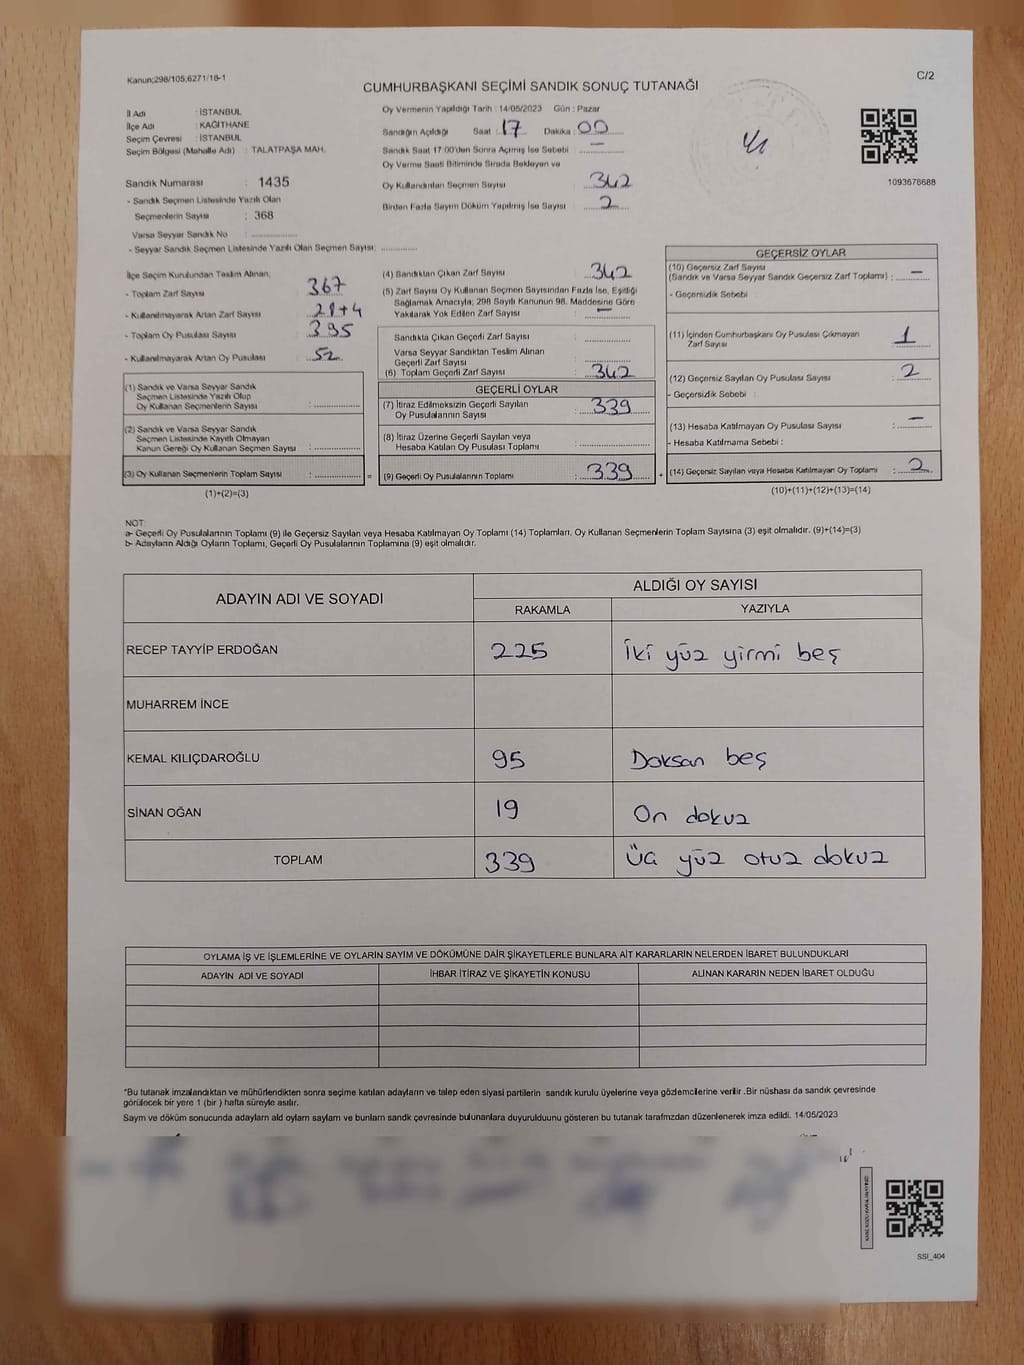 Kanun;298/105;6271/16-1
C/2
CUMHURBAŞKANI SEÇİMİ SANDIK SONUÇ TUTANAĞI
İl Adı : İSTANBUL
İlçe Adı : KAĞITHANE
Seçim Çevresi : İSTANBUL
Seçim Bölgesi (Mahalle Adı) : TALATPAŞA MAH.
Oy Vermenin Yapıldığı Tarih : 14/05/2023 Gün : Pazar
Sandığın Açıldığı Saat : 17 Dakika : 00
Sandık Saat 17:00'den Sonra Açımış İse Sebebi : —
Oy Verme Saati Bitiminde Sırada Bekleyen ve
Oy Kullandırılan Seçmen Sayısı : 342
Birden Fazla Sayım Döküm Yapılmış İse Sayısı : 2
1093678688
Sandık Numarası : 1435
- Sandık Seçmen Listesinde Yazılı Olan
Seçmenlerin Sayısı : 368
Varsa Seyyar Sandık No :
- Seyyar Sandık Seçmen Listesinde Yazılı Olan Seçmen Sayısı:
İlçe Seçim Kurulundan Teslim Alınan;
- Toplam Zarf Sayısı : 367
- Kullanılmayarak Artan Zarf Sayısı : 21+4
- Toplam Oy Pusulası Sayısı : 395
- Kullanılmayarak Artan Oy Pusulası : 52
(1) Sandık ve Varsa Seyyar Sandık
Seçmen Listesinde Yazılı Olup
Oy Kullanan Seçmenlerin Sayısı :
(2) Sandık ve Varsa Seyyar Sandık
Seçmen Listesinde Kayıtlı Olmayan
Kanun Gereği Oy Kullanan Seçmen Sayısı :
(3) Oy Kullanan Seçmenlerin Toplam Sayısı : =
(1)+(2)=(3)
(4) Sandıktan Çıkan Zarf Sayısı : 342
(5) Zarf Sayısı Oy Kullanan Seçmen Sayısından Fazla İse, Eşitliği
Sağlamak Amacıyla; 298 Sayılı Kanunun 98. Maddesine Göre
Yakılarak Yok Edilen Zarf Sayısı : —
Sandıkta Çıkan Geçerli Zarf Sayısı :
Varsa Seyyar Sandıktan Teslim Alınan
Geçerli Zarf Sayısı :
(6) Toplam Geçerli Zarf Sayısı : 342
GEÇERLİ OYLAR
(7) İtiraz Edilmeksizin Geçerli Sayılan
Oy Pusulalarının Sayısı : 339
(8) İtiraz Üzerine Geçerli Sayılan veya
Hesaba Katılan Oy Pusulası Toplamı :
(9) Geçerli Oy Pusulalarının Toplamı : 339 +
GEÇERSİZ OYLAR
(10) Geçersiz Zarf Sayısı
(Sandık ve Varsa Seyyar Sandık Geçersiz Zarf Toplamı) : —
- Geçersizlik Sebebi
(11) İçinden Cumhurbaşkanı Oy Pusulası Çıkmayan
Zarf Sayısı : 1
(12) Geçersiz Sayılan Oy Pusulası Sayısı : 2
- Geçersizlik Sebebi :
(13) Hesaba Katılmayan Oy Pusulası Sayısı : —
- Hesaba Katılmama Sebebi :
(14) Geçersiz Sayılan veya Hesaba Katılmayan Oy Toplamı : 2
(10)+(11)+(12)+(13)=(14)
NOT:
a- Geçerli Oy Pusulalarının Toplamı (9) ile Geçersiz Sayılan veya Hesaba Katılmayan Oy Toplamı (14) Toplamları, Oy Kullanan Seçmenlerin Toplam Sayısına (3) eşit olmalıdır. (9)+(14)=(3)
b- Adayların Aldığı Oyların Toplamı, Geçerli Oy Pusulalarının Toplamına (9) eşit olmalıdır.
ADAYIN ADI VE SOYADI
ALDIĞI OY SAYISI
RAKAMLA YAZIYLA
RECEP TAYYİP ERDOĞAN 225 İki yüz yirmi beş
MUHARREM İNCE
KEMAL KILIÇDAROĞLU 95 Doksan beş
SİNAN OĞAN 19 On dokuz
TOPLAM 339 Üç yüz otuz dokuz
OYLAMA İŞ VE İŞLEMLERİNE VE OYLARIN SAYIM VE DÖKÜMÜNE DAİR ŞİKAYETLERLE BUNLARA AİT KARARLARIN NELERDEN İBARET BULUNDUKLARI
ADAYIN ADI VE SOYADI İHBAR İTİRAZ VE ŞİKAYETİN KONUSU ALINAN KARARIN NEDEN İBARET OLDUĞU
*Bu tutanak imzalandıktan ve mühürlendikten sonra seçime katılan adayların ve talep eden siyasi partilerin sandık kurulu üyelerine veya gözlemcilerine verilir .Bir nüshası da sandık çevresinde
görülecek bir yere 1 (bir ) hafta süreyle asılır.
Sayım ve döküm sonucunda adayların ald oyların sayların ve bunların sandk çevresinde bulunanlara duyurulduunu gösteren bu tutanak tarafmzdan düzenlenerek imza edildi. 14/05/2023
SSI_404